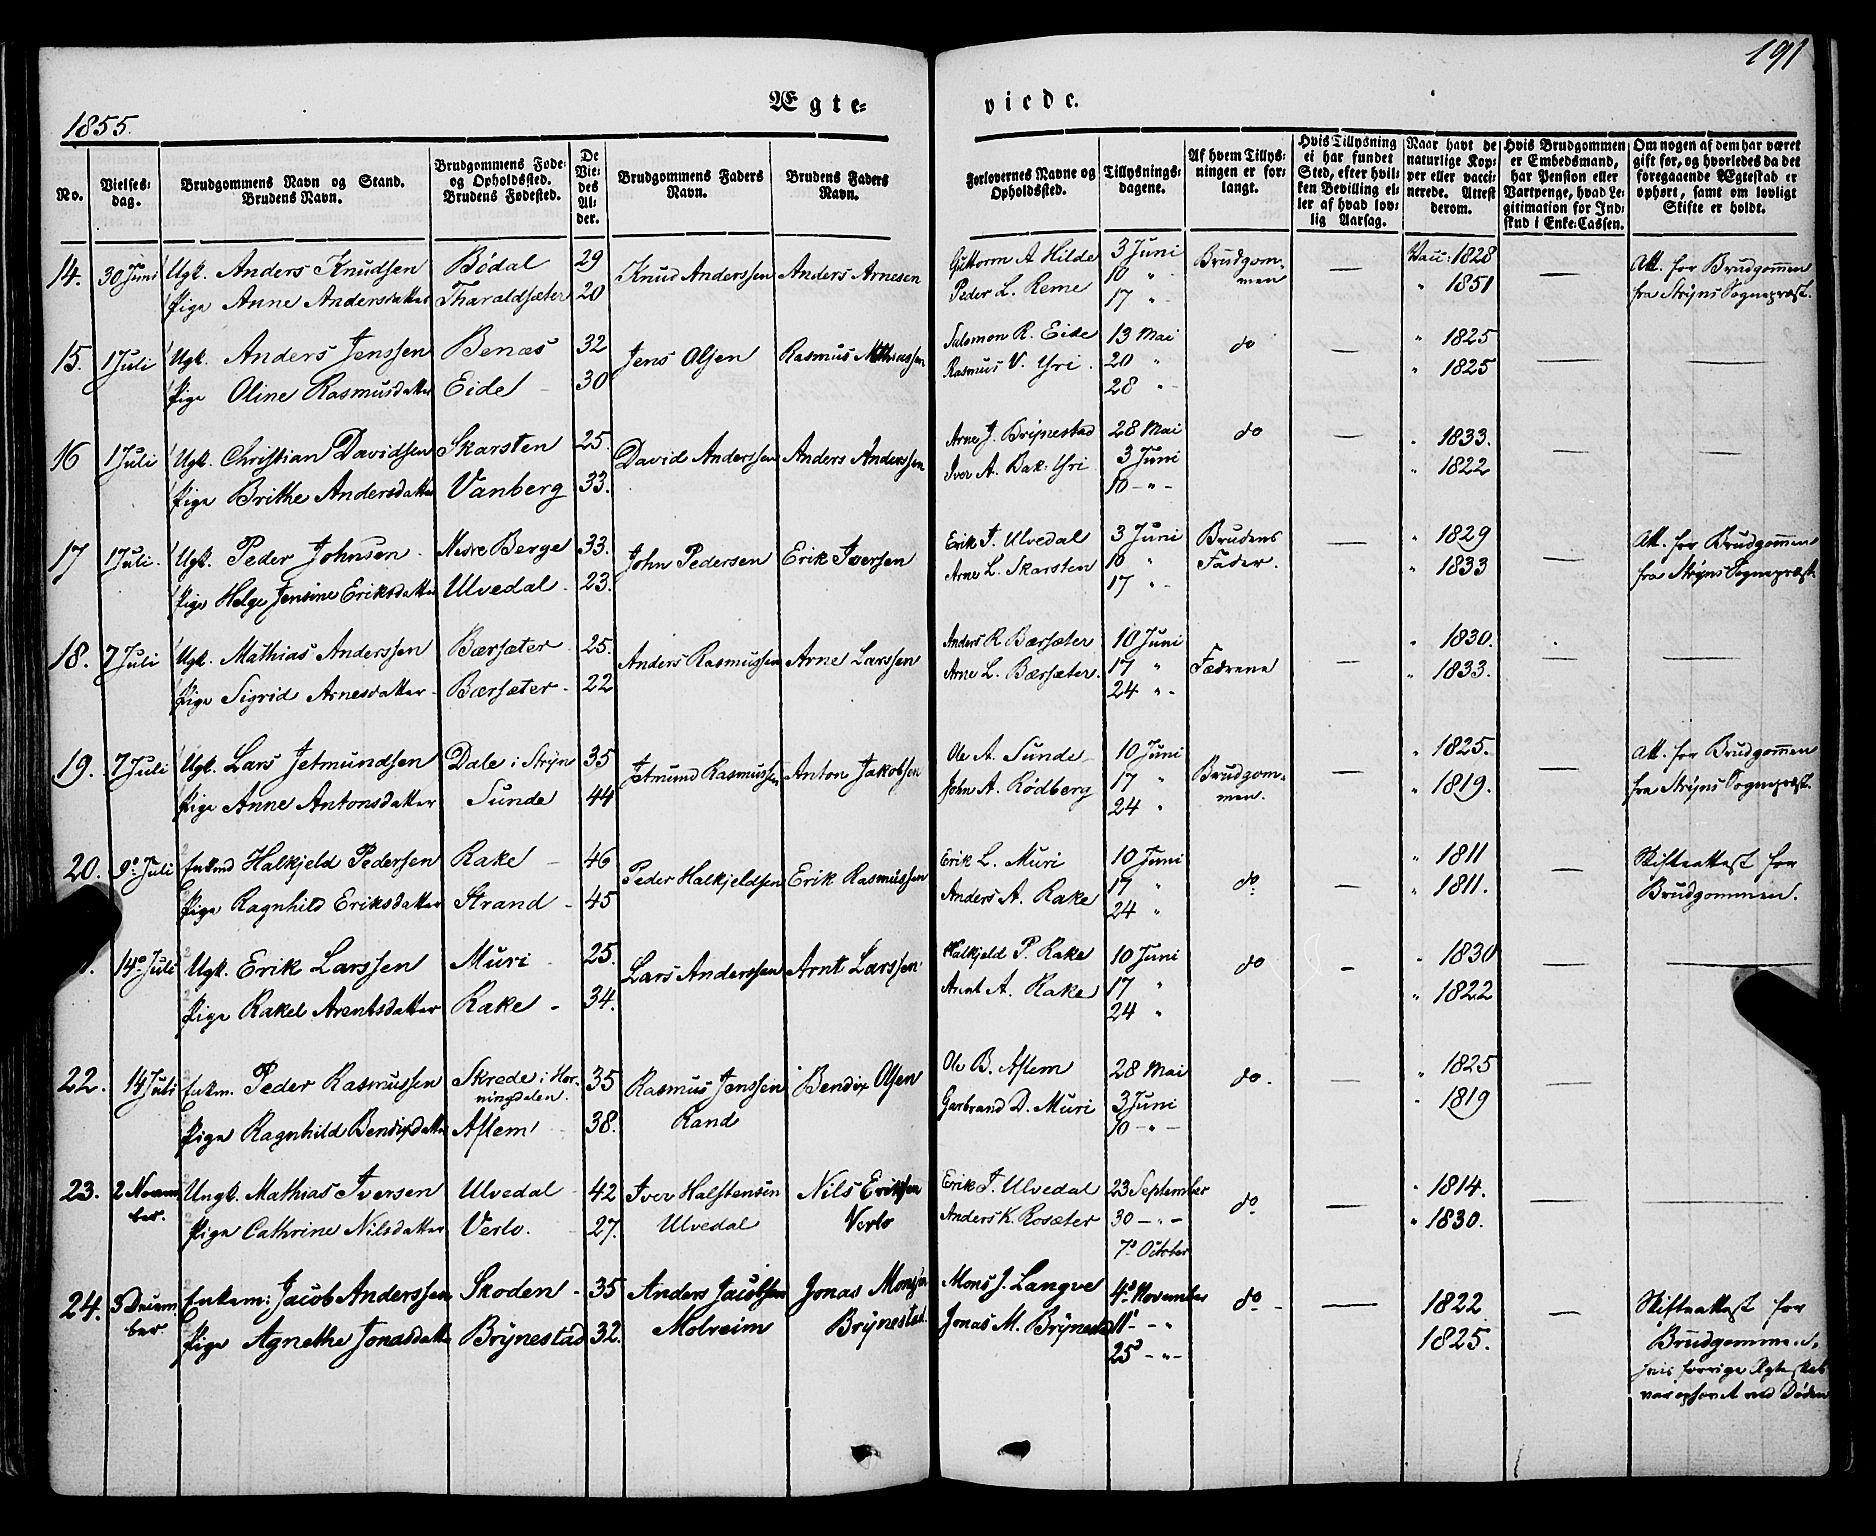 191
1855.
Ægte=
viede.
No.
Vielses=
dag.
Brudgommens Navn og Stand.
Brudens Navn.
Brudgommens Føde=
og Opholdssted.
Brudens Fødested.
De
Vie=
des
Al=
der.
Brudgommens Faders
Navn.
Brudens Faders
Navn.
Forlovernes Navne og
Opholdssted.
Tillysnings=
dagene.
Af hvem Tillys=
ningen er for=
langt.
Hvis Tillysning
ei har fundet
Sted, efter hvil=
ken Bevilling el=
ler af hvad lov=
lig Aarsag.
Naar havt de
naturlige Kop=
per eller vacci=
nerede. Attest
derom.
Hvis Brudgommen
er Embedsmand,
har Pension eller
Vartpenge, hvad Le=
gitimation for Ind=
skud i Enke=Cassen.
Om nogen af dem har været
gift før, og hvorledes da det
foregaaende Ægtestad er
ophørt, samt om lovligt
Skifte er holdt.
14. 30 Juni Ugk. Anders Knudsen Bödal 29 Knud Anderssen Anders Arnesen Guttorm A Hilde 3 Juni Brudgom= — Vacc: 1828 — Att. for Brudgommen
Pige Anne Andersdatter Tharaldsæter 20 Peder L. Reme 10 " men " 1851 fra Stryns Sognepræst.
17 "
15. 1 Juli Ugk. Anders Jenssen Benæs 32 Jens Olsen Rasmus Mathiassen Salomon R. Eide 13 Mai do — " 1825 — —
Pige Oline Rasmusdatter Eide 30 Rasmus V. Yri. 20 " " 1825
28 "
16 1 Juli Ugk. Christian Davidsen Skarsten 25. David Anderssen Anders Anderssen Arne J. Brynestad 28 Mai do — " 1833. — —
Pige Brithe Andersdatter Vanberg 33. Iver A. Bak: Yri 3 Juni " 1822
10 — " —
17 1 Juli. Ugk. Peder Johnsen Nedre Berge 33. John Pedersen Erik Iversen Erik I. Ulvedal 3 Juni Brudens — " 1829 — Att. for Brudgommen
Pige Helge Jensine Eriksdatter Ulvedal 23. Arne L. Skarsten 10 " Fader. " 1833 fra Stryns Sognepræst
17 "
18. 7 Juli Ugk. Mathias Anderssen Bærsæter 25. Anders Rasmussen Arne Larssen Anders R. Bærsæter 10 Juni Fædrene — " 1830. —
Pige Sigrid Arnesdatter Bærsæter 22 Arne L. Bærsæter. 17 " " 1833.
24 "
19. 7 Juli Ugk. Lars Jetmundsen Dale i Stryn 35 Jetmund Rasmussen Anton Jakobsen Ole A. Sunde 10 Juni Brudgom= — " 1825. — Att. for Brudgommen
Pige Anne Antonsdatter Sunde 44 John A. Rödberg 17 " men. " 1819. fra Stryns Sognepræst.
24 "
20. 9. Juli Enkmd Halkjeld Pedersen Rake 46 Peder Halkjeldsen Erik Rasmussen Erik L. Muri 10 Juni do — " 1811 — Skifteattest for
Pige Ragnhild Eriksdatter Strand 45 Anders A. Rake 17 " " 1811. Brudgommen.
24 "
1. 14. Juli Ugk. Erik Larssen Muri 25. Lars Anderssen Arnt Larssen Halkjeld P. Rake 10 Juni do — " 1830 — —
Pige Rakel Arentsdatter Rake 34. Arent A. Rake 17 " " 1822
24 "
22. 14 Juli Enkm. Peder Rasmussen Skrede i Hor= 35 Rasmus Jenssen Bendix Olsen Ole B. Aflem 28 Mai do. — " 1825 —
ningdalen.
Pige Ragnhild Bendixdatter Aflem 38. Rand Garbrand D. Muri 3 Juni " 1819
10 — " —
23. 2 Novem Ungk. Mathias Iversen Ulvedal 42 Iver Halstensen Nils Eriksen Erik I. Ulvedal 23 September do — " 1814. — —
ber. Pige Cathrine Nilsdatter Verlo. 27. Ulvedal Verlo Anders K. Rosæter 30 — " — " 1830.
7. October
24. 3 Decem Enkem: Jacob Anderssen Skoden 35 Anders Jacobsen Jonas Monssen Mons J. Langve 4. November do — 1822 — Skifteattest for
ber. Pige Agnethe Jonasdatter Brynestad 32. Molreim Brynestad. Jonas M. Brynestad 11 — " 1825. Brudgommen,
25 — " — hvis forrige Ægteskab
var ophøret ved Døden